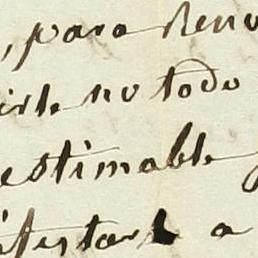 , para Renov
irle no todo
estimable
ifestar a